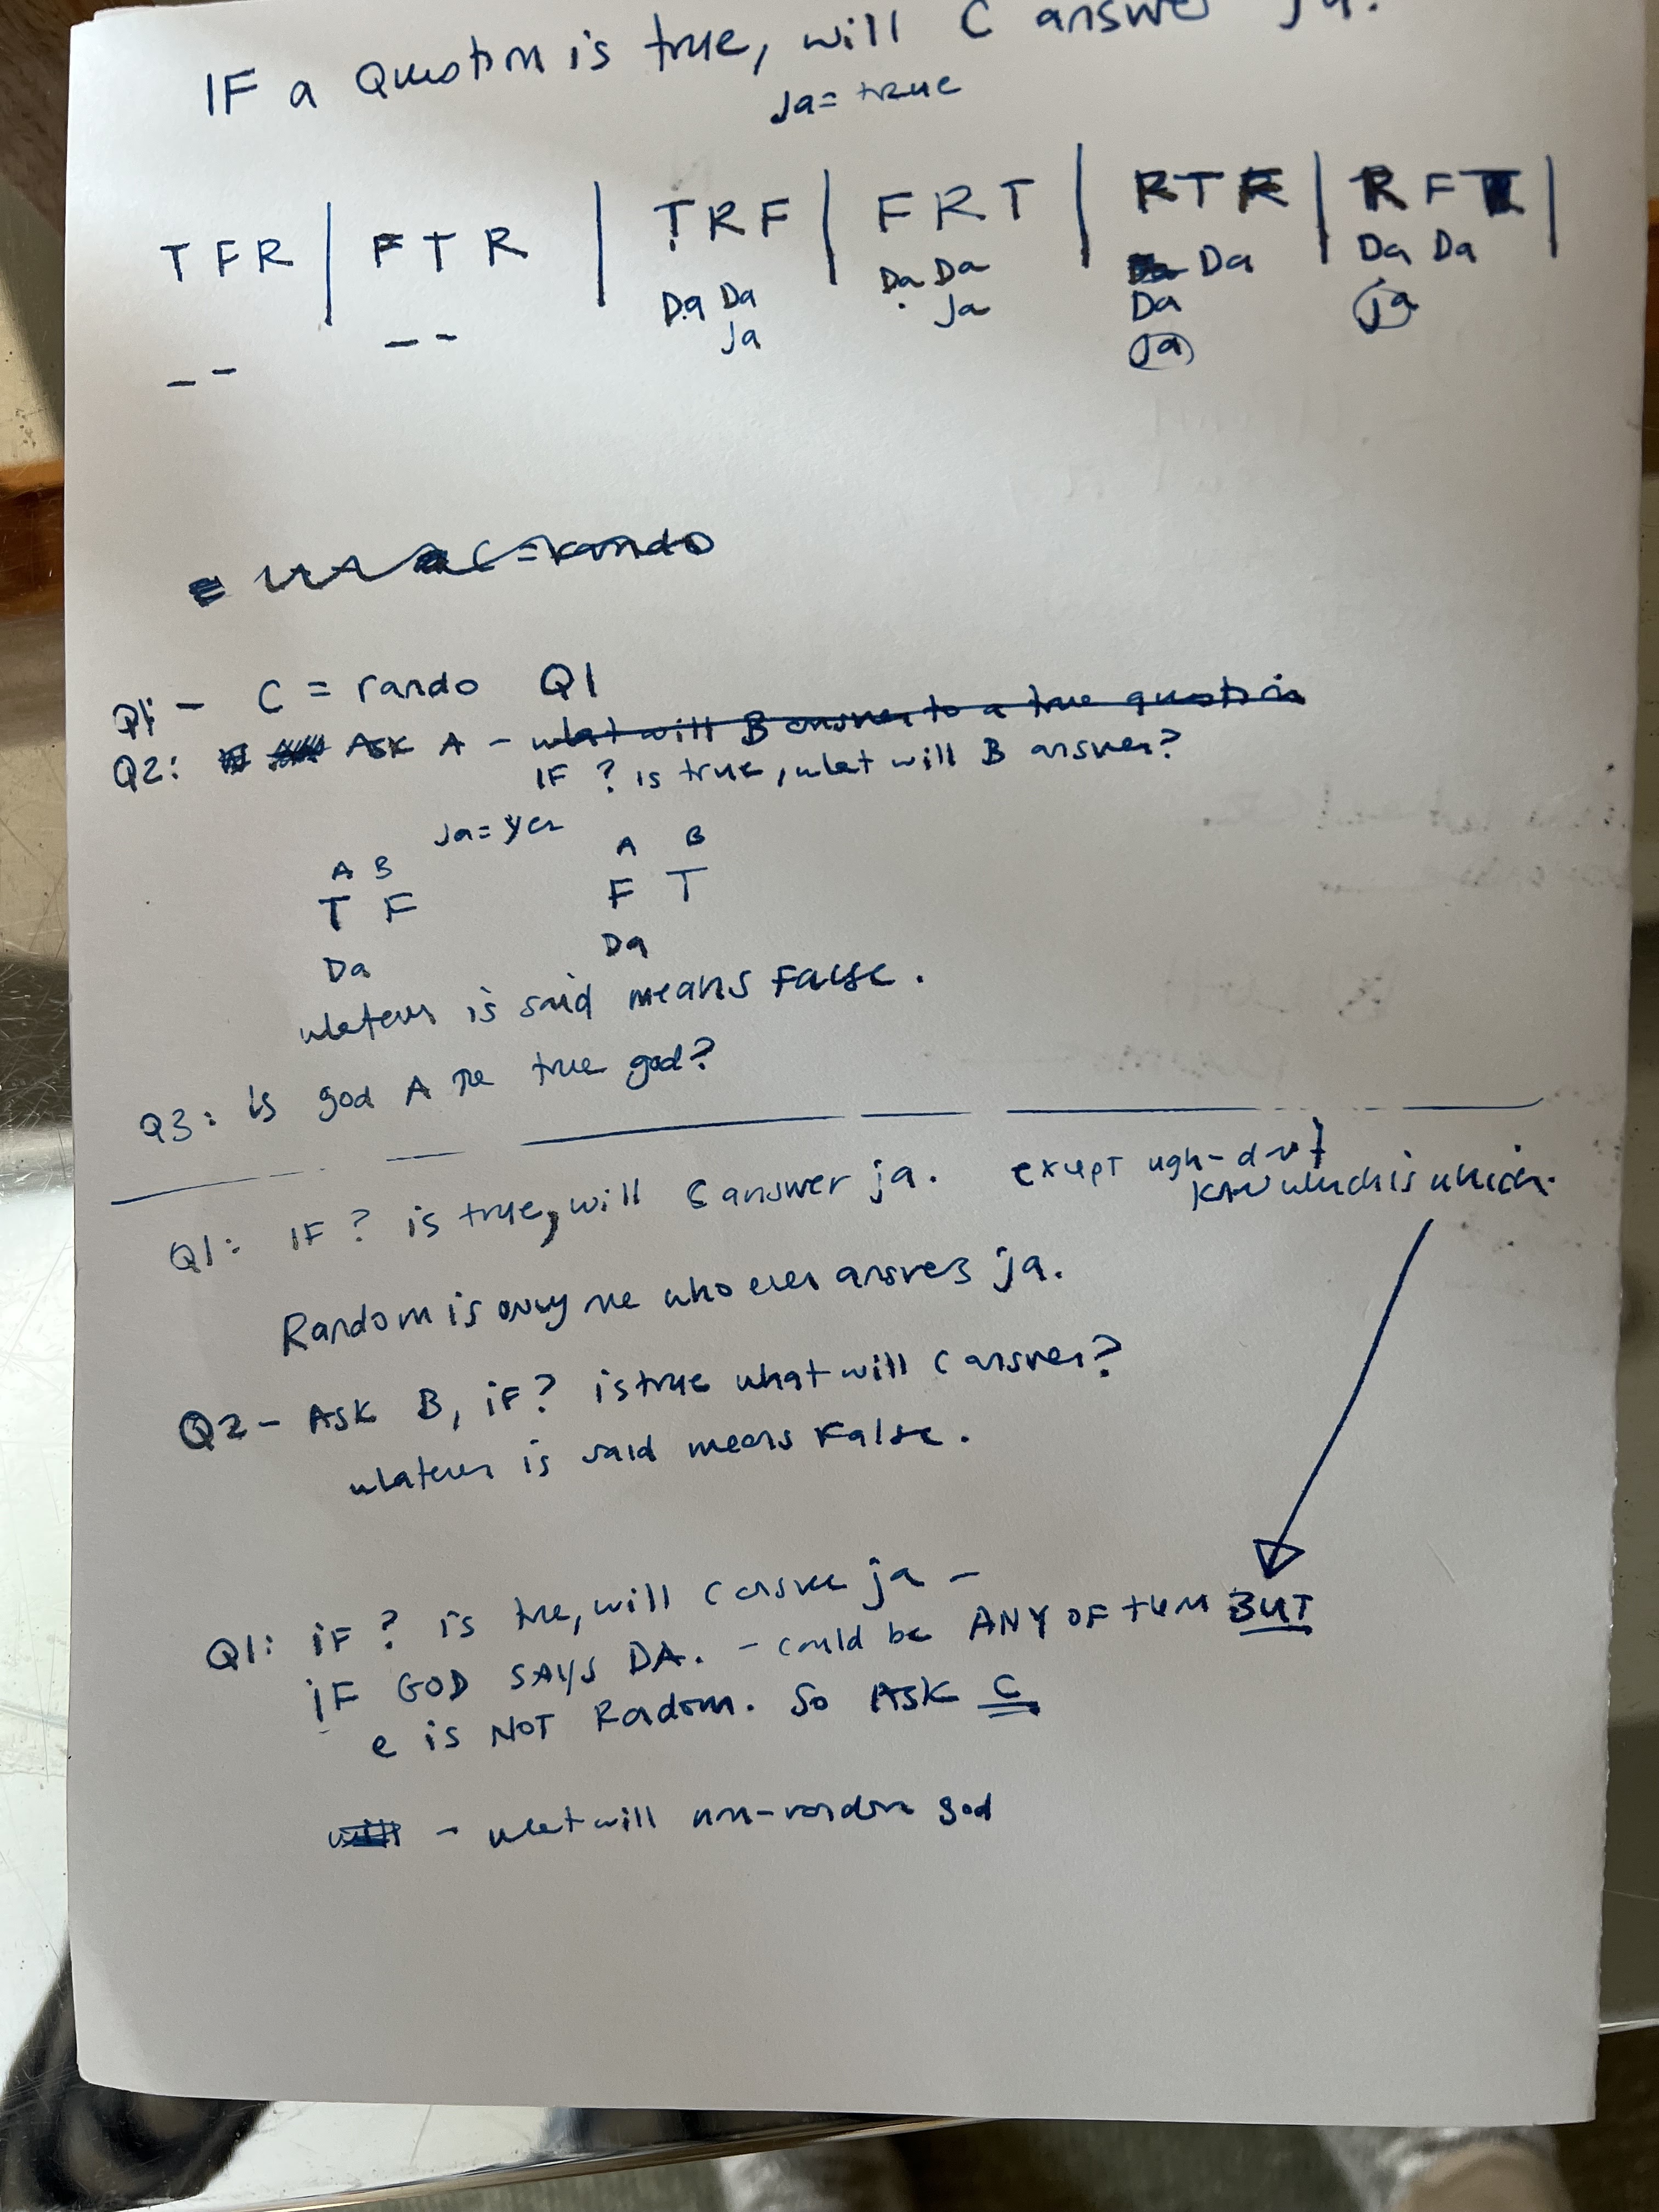 IF a Question is true, will C answer ja.
ja = true
T F R | F T R | T R F | F R T | R T F | R F T |
-- -- Da Da Da Da Da Da Da
ja ja Da ja
ja
C = rando
Q1: - C = rando Q1
Q2: Ask A - what will B answer to a true question
IF ? is true, what will B answer?
ja = yes
A B A B
T F F T
Da Da
whatever is said means False.
Q3: is god A the true god?
Q1: IF ? is true, will C answer ja. except ugh - don't
know which is which.
Random is only one who ever answers ja.
Q2 - Ask B, if ? is true what will C answer?
whatever is said means False.
Q1: iF ? is true, will C answer ja -
iF GOD SAYS DA. - could be ANY OF them BUT
C is NOT Random. So ASK C
will - what will non-random god